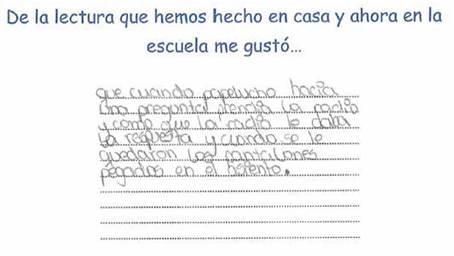 De la lectura que hemos hecho en casa y ahora en la
escuela me gustó...
que cuando papelucho hacia
una pregunta prendia la radio
y como que la radio le daba
la respuesta y cuando se le
quedaron los pantalones
pegados en el asiento.